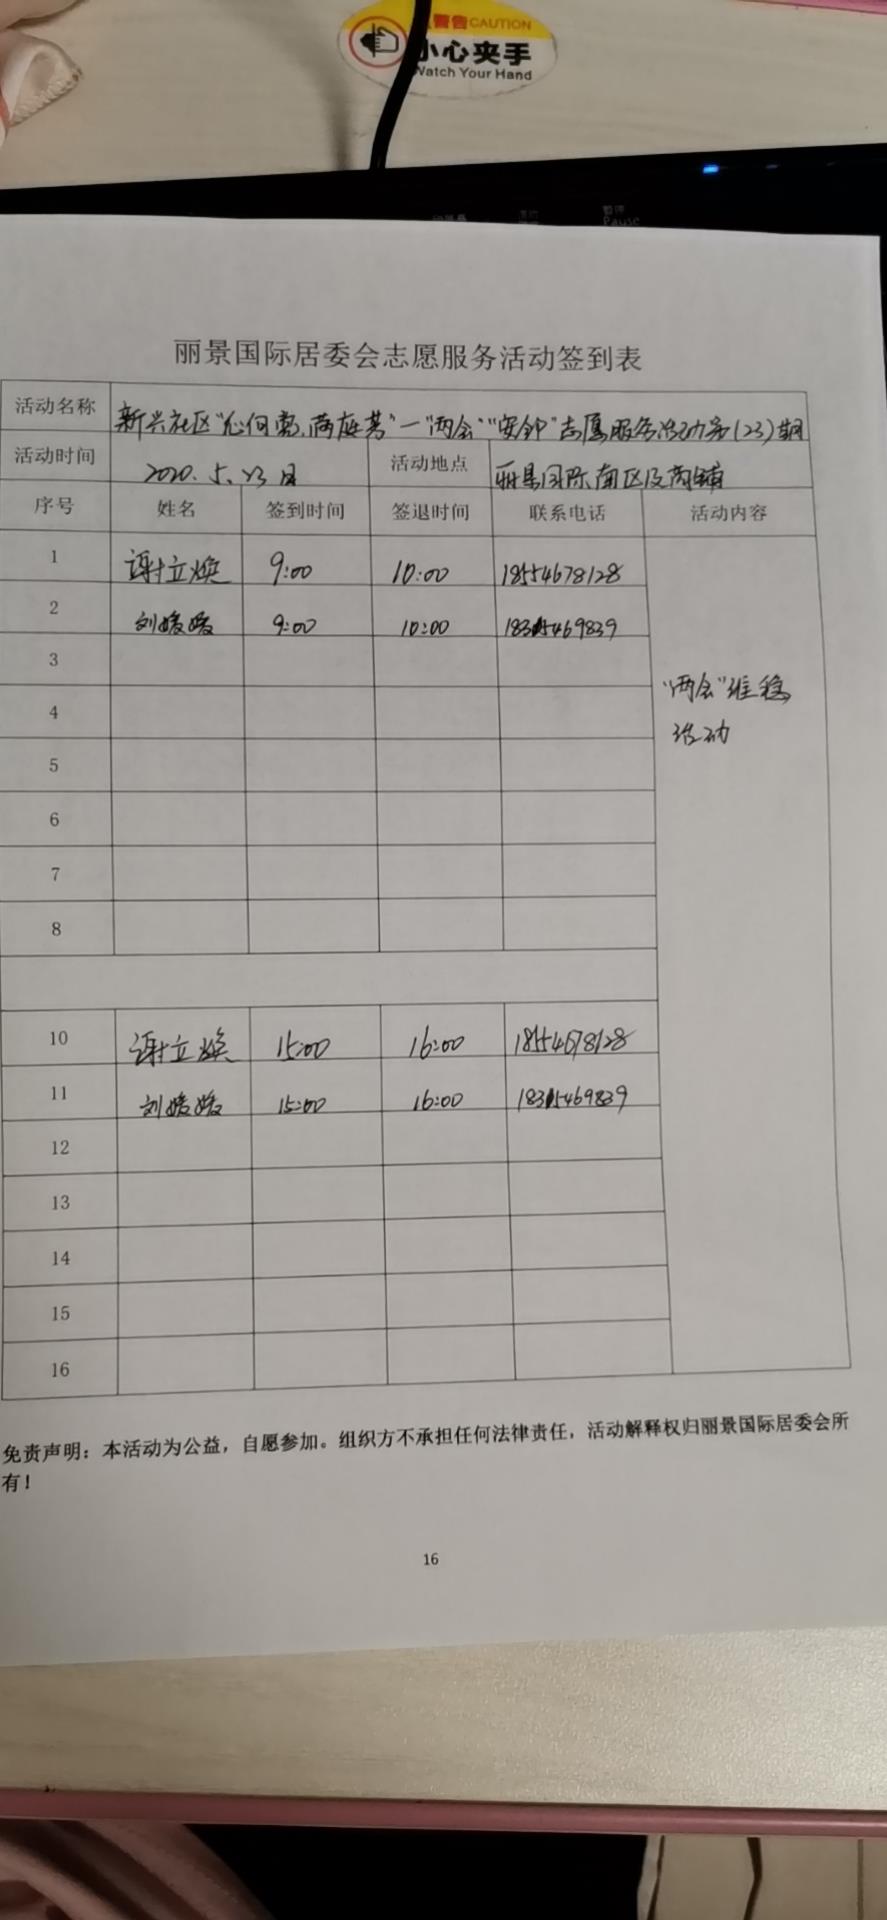 警告CAUTION
小心夹手
Watch Your Hand
暂停
Pause
丽景国际居委会志愿服务活动签到表
活动名称 新兴社区“心向党、 ”一“两会”“安 ”志愿服务活动第(23)期
活动时间 2020.5.23日 活动地点 丽景国际南区及商铺
序号 姓名 签到时间 签退时间 联系电话 活动内容
1 谢立焕 9:00 10:00 18554678128
2 刘媛媛 9:00 10:00 18315469839
3
“两会”维稳
4
活动
5
6
7
8
10 谢立焕 15:00 16:00 18554678128
11 刘媛媛 15:00 16:00 18315469839
12
13
14
15
16
免责声明：本活动为公益，自愿参加。组织方不承担任何法律责任，活动解释权归丽景国际居委会所
有！
16